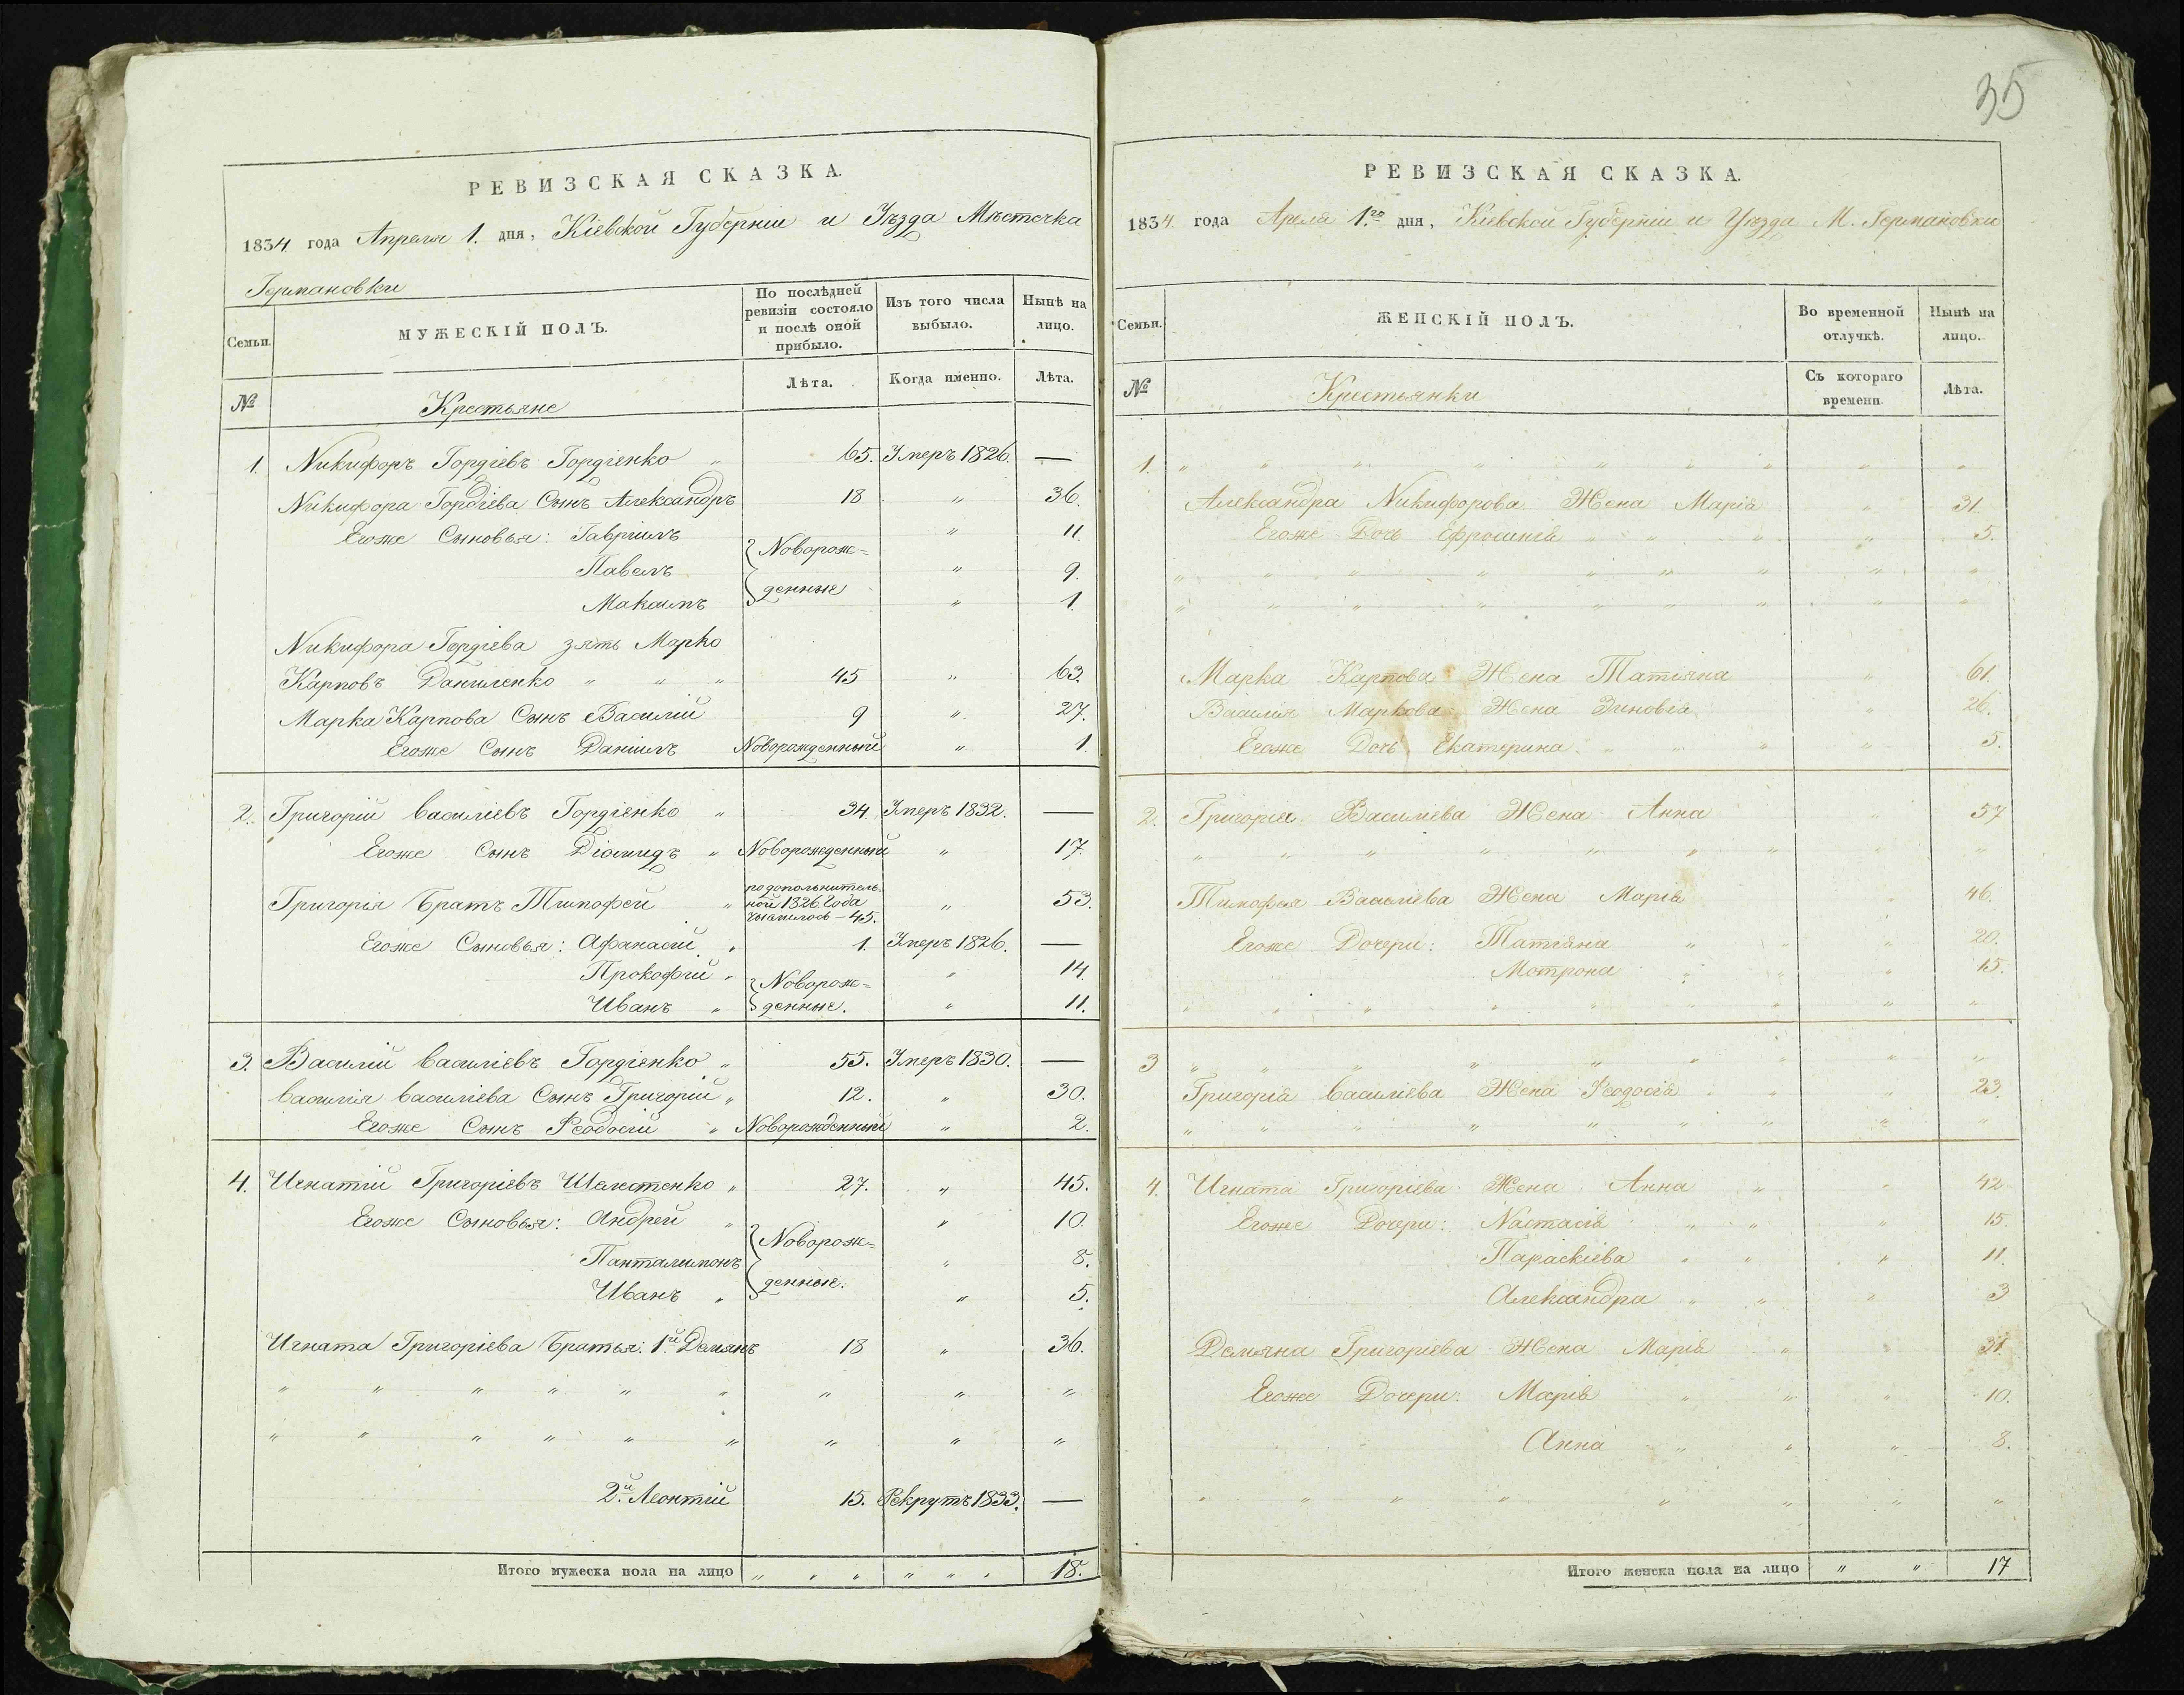 35
РЕВИЗСКАЯ СКАЗКА.
1834 года Апреля 1. дня, Кіевской Губерніи и Уѣзда Мѣстечка
Германовки
Семьи.
МУЖЕСКІЙ ПОЛЪ.
По послѣдней ревизіи состояло и послѣ оной прибыло.
Изъ того числа выбыло.
Нынѣ на лицо.
№
Крестьяне
Лѣта.
Когда именно.
Лѣта.
1. Никифоръ Гордіевъ Гордіенко " 65. Умеръ 1826. —
Никифора Гордіева Сынъ Александръ 18 " 36.
Егоже Сыновья: Гавріилъ Новорож= " 11.
Павелъ " 9.
Максимъ денные " 1.
Никифора Гордіева зять Марко
Карповъ Даниленко " " " 45 " 63.
Марка Карпова Сынъ Василій 9 " 27.
Егоже Сынъ Даніилъ Новорожденный " 1
2. Григорій Василіевъ Гордіенко " 34 Умеръ 1832. —
Егоже Сынъ Діомидъ " Новорожденный " 17.
по дополнитель.
Григорія Братъ Тимофей " ной 1826 Года " 53.
числилось – 45.
Егоже Сыновья: Афанасій " 1. Умеръ 1826. —
Прокофій " Новорож= " 14
Иванъ " денные. " 11.
3. Василій Василіевъ Гордіенко " 55. Умеръ 1830. —
Василія Василіева Сынъ Григорій " 12. " 30.
Егоже Сынъ Феодосій " Новорожденный " 2.
4. Игнатій Григоріевъ Шелестенко " 27. " 45.
Егоже Сыновья: Андрей " Новорож= " 10.
Панталимонъ " 8.
Иванъ " денные. " 5.
Игната Григоріева Братья: 1й Демянъ 18 " 36.
" " " " " " " " "
" " " " " " " " "
2й Леонтій 15. Рекрутъ 1833. —
Итого мужеска пола на лицо " " " " " " 18.
РЕВИЗСКАЯ СКАЗКА.
1834 года Апреля 1го дня, Кіевской Губерніи и Уѣзда М. Германовки
Семьи.
ЖЕНСКІЙ ПОЛЪ.
Во временной отлучкѣ.
Нынѣ на лицо.
№
Крестьянки
Съ котораго времени
Лѣта.
1. " " " " " " " " "
Александра Никифорова Жена Марія " 31.
Егоже Дочь Ефросинія " " " " 5.
" " " " " " " " "
" " " " " " " " "
Марка Карпова Жена Татіяна " 61.
Василія Маркова Жена Зиновія " 26.
Егоже Дочь Екатерина " " " " 5.
2. Григорія Василіева Жена Анна " 57
" " " " " " " " "
Тимофея Василіева Жена Марія " 46.
Егоже Дочери: Татіяна " " " 20.
Мотрона " " " 15.
" " " " " " " " "
3 " " " " " " " " "
Григорія Василіева Жена Феодосія " " " 23.
" " " " " " " " "
4. Игната Григоріева Жена Анна " " 42
Егоже Дочери: Настасія " " " 15.
Параскіева " " " 11.
Александра " " " 3
Демяна Григоріева Жена Марія " " 31.
Егоже Дочери: Марія " " " 10.
Анна " " " 8.
" " " " " " " "
Итого женска пола на лицо " " 17